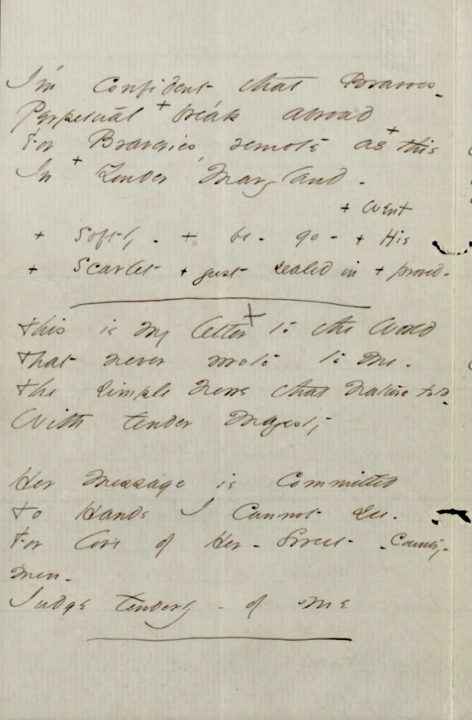 I'm confident that Bravoes -
Perpetual + break abroad
For Braveries, remote as + this
In + Yonder Maryland -
+ Went
+ Softly - + be - go - + His
+ Scarlet + just sealed in + proved -
This is my letter + to the World
That never wrote to Me -
The simple News that Nature told -
With tender Majesty
Her Message is Committed
To Hands I cannot see -
For love of Her - Sweet - Country -
men -
Judge tenderly - of Me